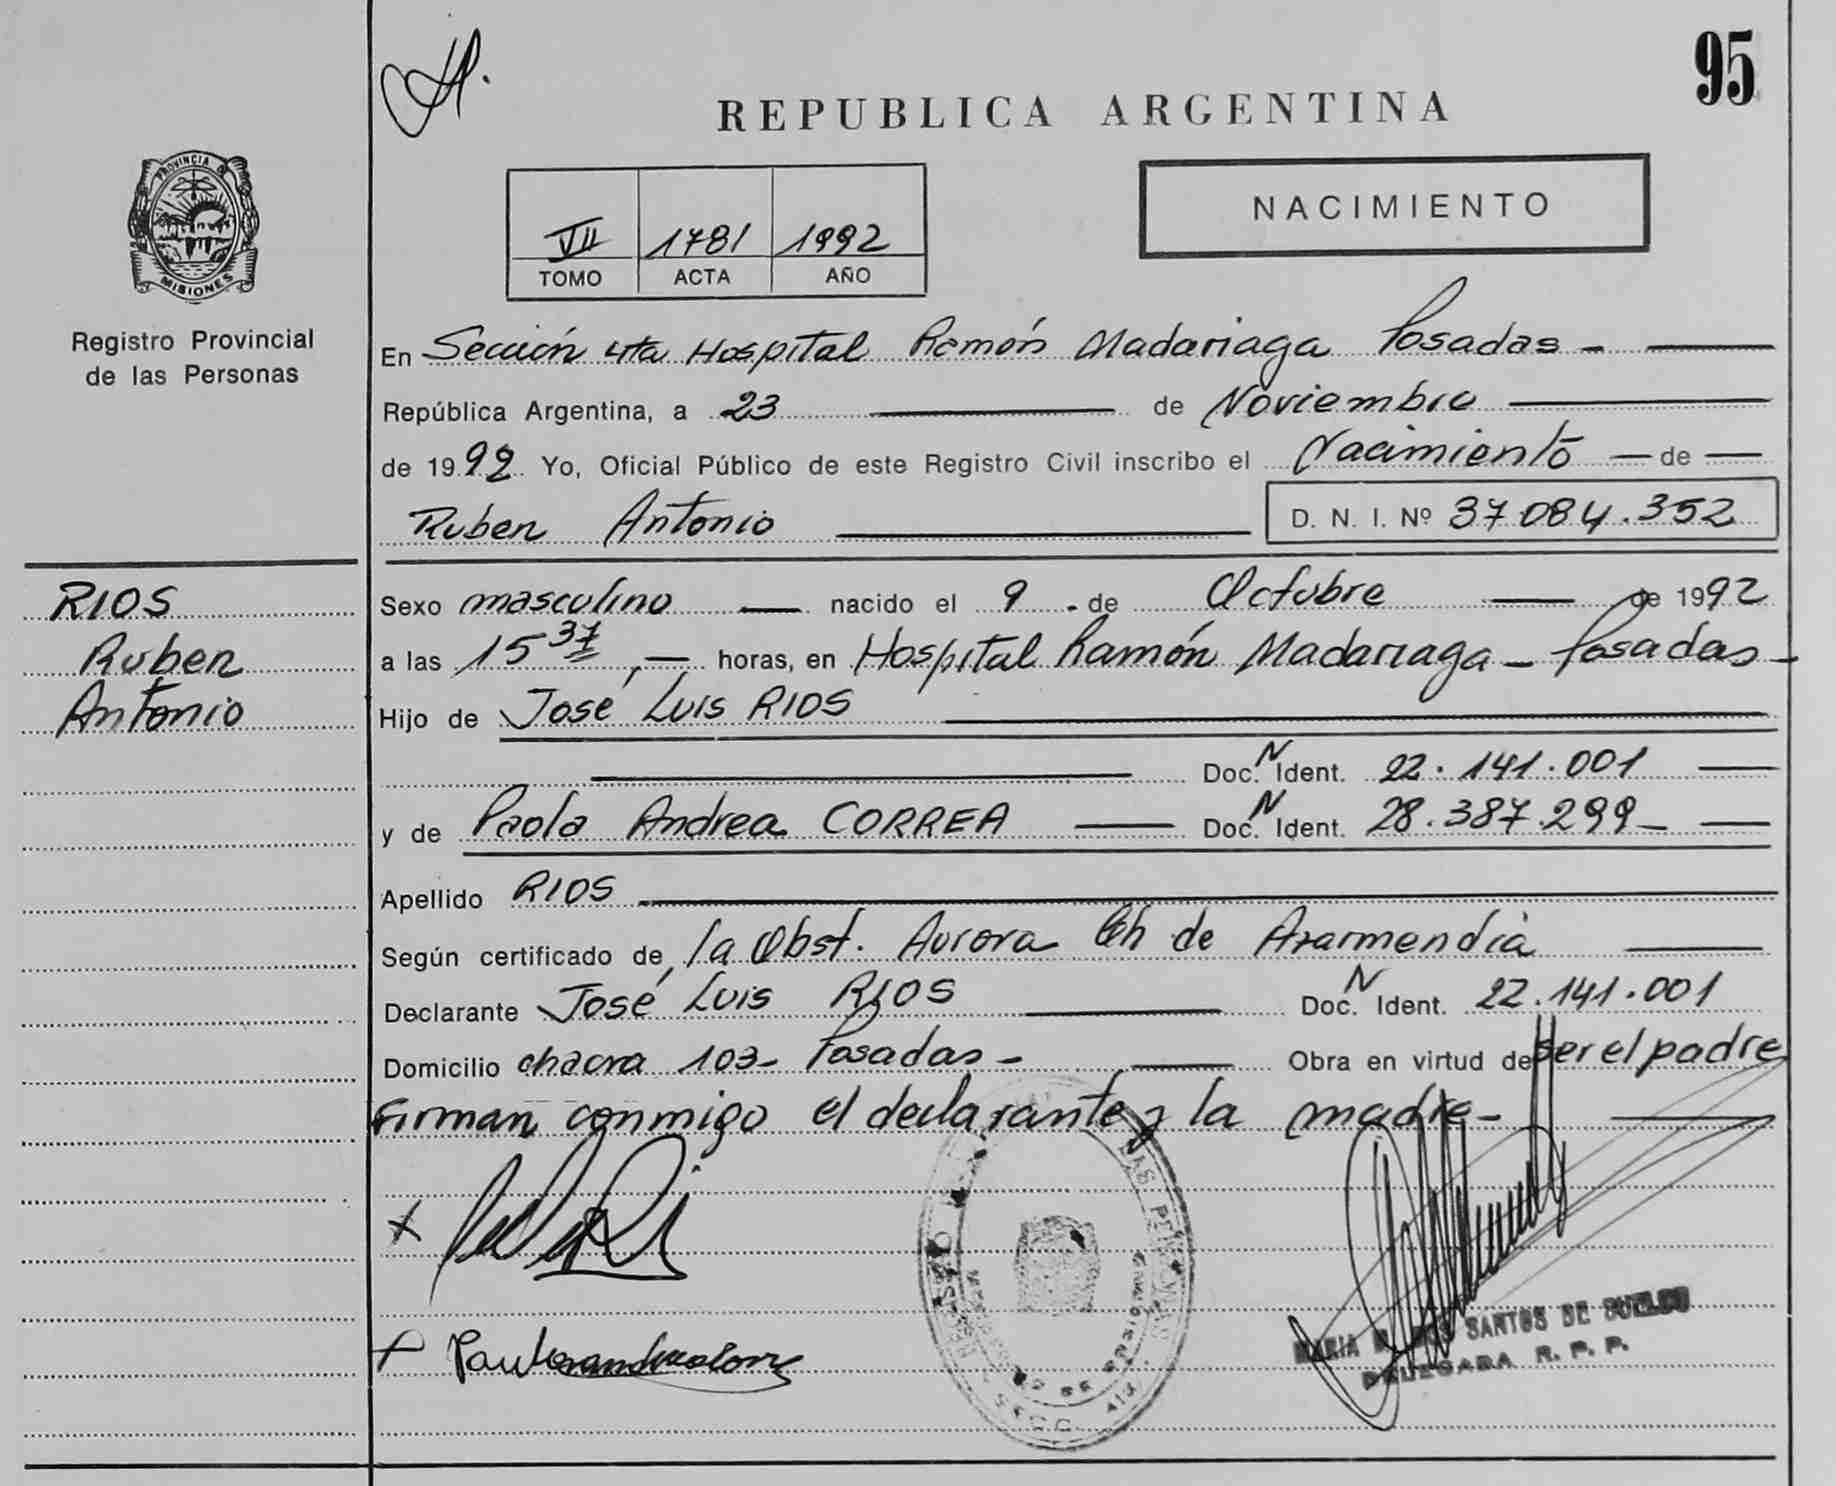 95
REPUBLICA ARGENTINA
PROVINCIA DE
MISIONES
Registro Provincial
de las Personas
VII 1781 1992
TOMO ACTA AÑO
NACIMIENTO
En Sección 4ta Hospital Ramón Madariaga Posadas -
República Argentina, a 23 de Noviembre
de 1992 Yo, Oficial Público de este Registro Civil inscribo el Nacimiento de
Ruben Antonio D. N. I. Nº 37084.352
RIOS
Ruben
Antonio
Sexo masculino nacido el 9 de Octubre de 1992
a las 15 37 , horas, en Hospital Ramón Madariaga - Posadas -
Hijo de José Luis RIOS
Doc. N Ident. 22.141.001
y de Paola Andrea CORREA Doc. N Ident. 28.387.299 -
Apellido RIOS
Según certificado de la Obst. Aurora Ch de Azarmendia
Declarante José Luis RIOS Doc. N Ident. 22.141.001
Domicilio chacra 103 - Posadas - Obra en virtud de ser el padre
Firman conmigo el declarante y la madre -
MARIA SANTOS DE
DELEGADA R. P. P.